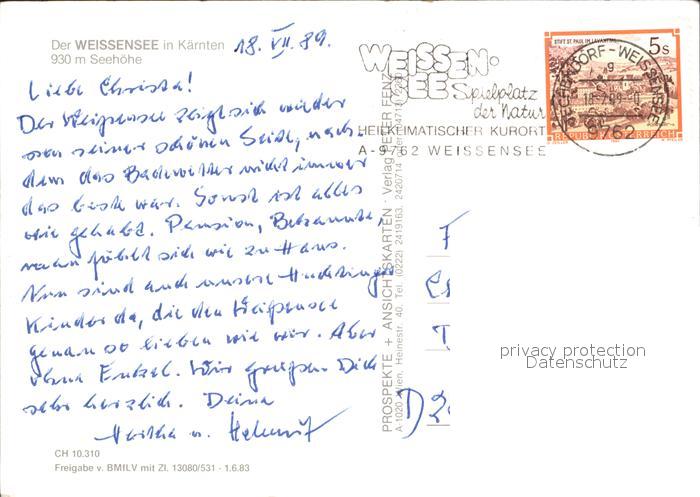 Der WEISSENSEE in Kärnten
930 m Seehöhe
18. VII. 89.
Liebe Christa!
Der Weißensee zeigt sich wieder
von seiner schönen Seite, nach-
dem das Badewetter nicht immer
das beste war. Sonst ist alles
wie gehabt. Pension, Bekannte,
man fühlt sich wie zu Haus.
Nun sind auch unsere
Kinder da, die den Weißensee
genau so lieben wie wir. Aber
ohne Enkel. Wir grüßen Dich
sehr herzlich. Deine
Hertha u. Helmut
CH 10.310
Freigabe v. BMILV mit Zl. 13080/531 - 1.6.83
PROSPEKTE + ANSICHTSKARTEN · Verlag PETER FENZ
A-1020 Wien, Heinestr. 40, Tel. (0222) 2419163, 2420714
WEISSEN-
SEE Spielplatz
der Natur
HEILKLIMATISCHER KURORT
A-9762 WEISSENSEE
STIFT ST. PAUL IM LAVANTTAL
5 S
REPUBLIK ÖSTERREICH
TECHENDORF - WEISSENSEE
9762
F
T
D
privacy protection
Datenschutz